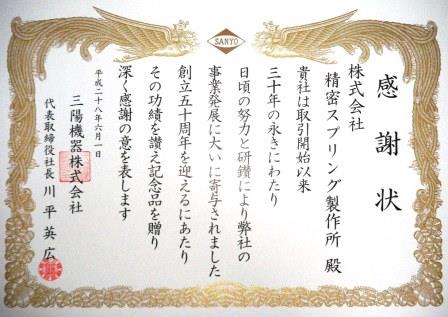 SANYO
感謝状
株式会社
精密スプリング製作所 殿
貴社は取引開始以来
三十年の永きにわたり
日頃の努力と研鑽により弊社の
事業発展に大いに寄与されました
創立五十周年を迎えるにあたり
その功績を讃え記念品を贈り
深く感謝の意を表します
平成二十八年六月一日
三陽機器株式会社
代表取締役社長 川平英広